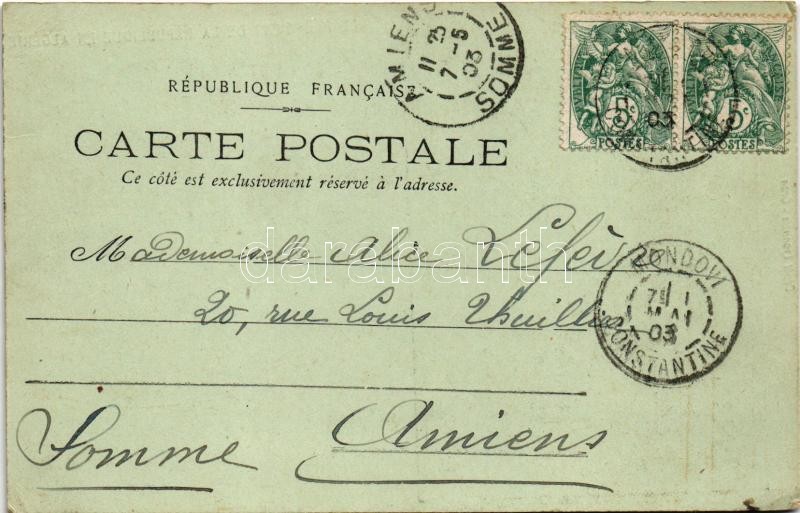 AMIENS
11 25
7 -5
03
SOMME
RÉPUBLIQUE FRANÇAISE
CARTE POSTALE
Ce côté est exclusivement réservé à l'adresse.
5c 5c
POSTES POSTES
03
Mademoiselle Alice Lefèv
20, rue Louis Thuillier
MONDOVI
MAI
03
CONSTANTINE
Somme Amiens
darabanth